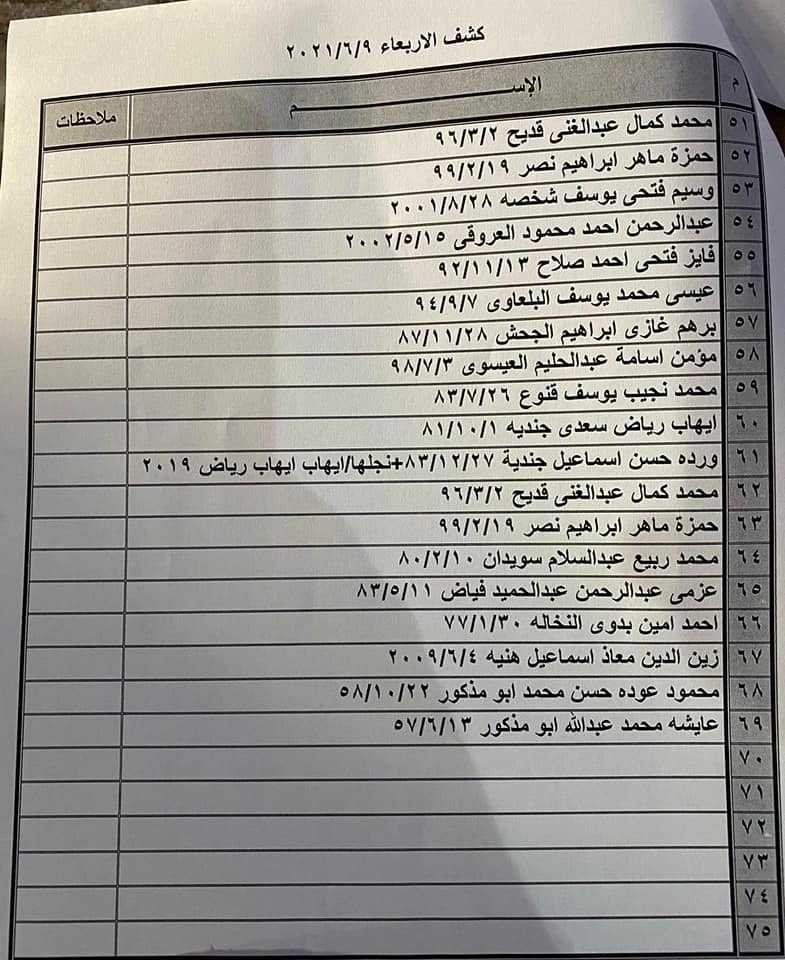 كشف الاربعاء ٢٠٢١/٦/٩
م الإســـم ملاحظات
٥١ محمد كمال عبدالغنى قديح ٩٦/٣/٢
٥٢ حمزة ماهر ابراهيم نصر ٩٩/٢/١٩
٥٣ وسيم فتحى يوسف شخصه ٢٠٠١/٨/٢٨
٥٤ عبدالرحمن احمد محمود العروقى ٢٠٠٢/٥/١٥
٥٥ فايز فتحى احمد صلاح ٩٢/١١/١٣
٥٦ عيسى محمد يوسف البلعاوى ٩٤/٩/٧
٥٧ برهم غازى ابراهيم الجحش ٨٧/١١/٢٨
٥٨ مؤمن اسامة عبدالحليم العيسوى ٩٨/٧/٣
٥٩ محمد نجيب يوسف قنوع ٨٣/٧/٢٦
٦٠ ايهاب رياض سعدى جنديه ٨١/١٠/١
٦١ ورده حسن اسماعيل جندية ٨٣/١٢/٢٧+نجلها/ايهاب ايهاب رياض ٢٠١٩
٦٢ محمد كمال عبدالغنى قديح ٩٦/٣/٢
٦٣ حمزة ماهر ابراهيم نصر ٩٩/٢/١٩
٦٤ محمد ربيع عبدالسلام سويدان ٨٠/٢/١٠
٦٥ عزمى عبدالرحمن عبدالحميد فياض ٨٣/٥/١١
٦٦ احمد امين بدوى النخاله ٧٧/١/٣٠
٦٧ زين الدين معاذ اسماعيل هنيه ٢٠٠٩/٦/٤
٦٨ محمود عوده حسن محمد ابو مذكور ٥٨/١٠/٢٢
٦٩ عايشه محمد عبدالله ابو مذكور ٥٧/٦/١٣
٧٠
٧١
٧٢
٧٣
٧٤
٧٥